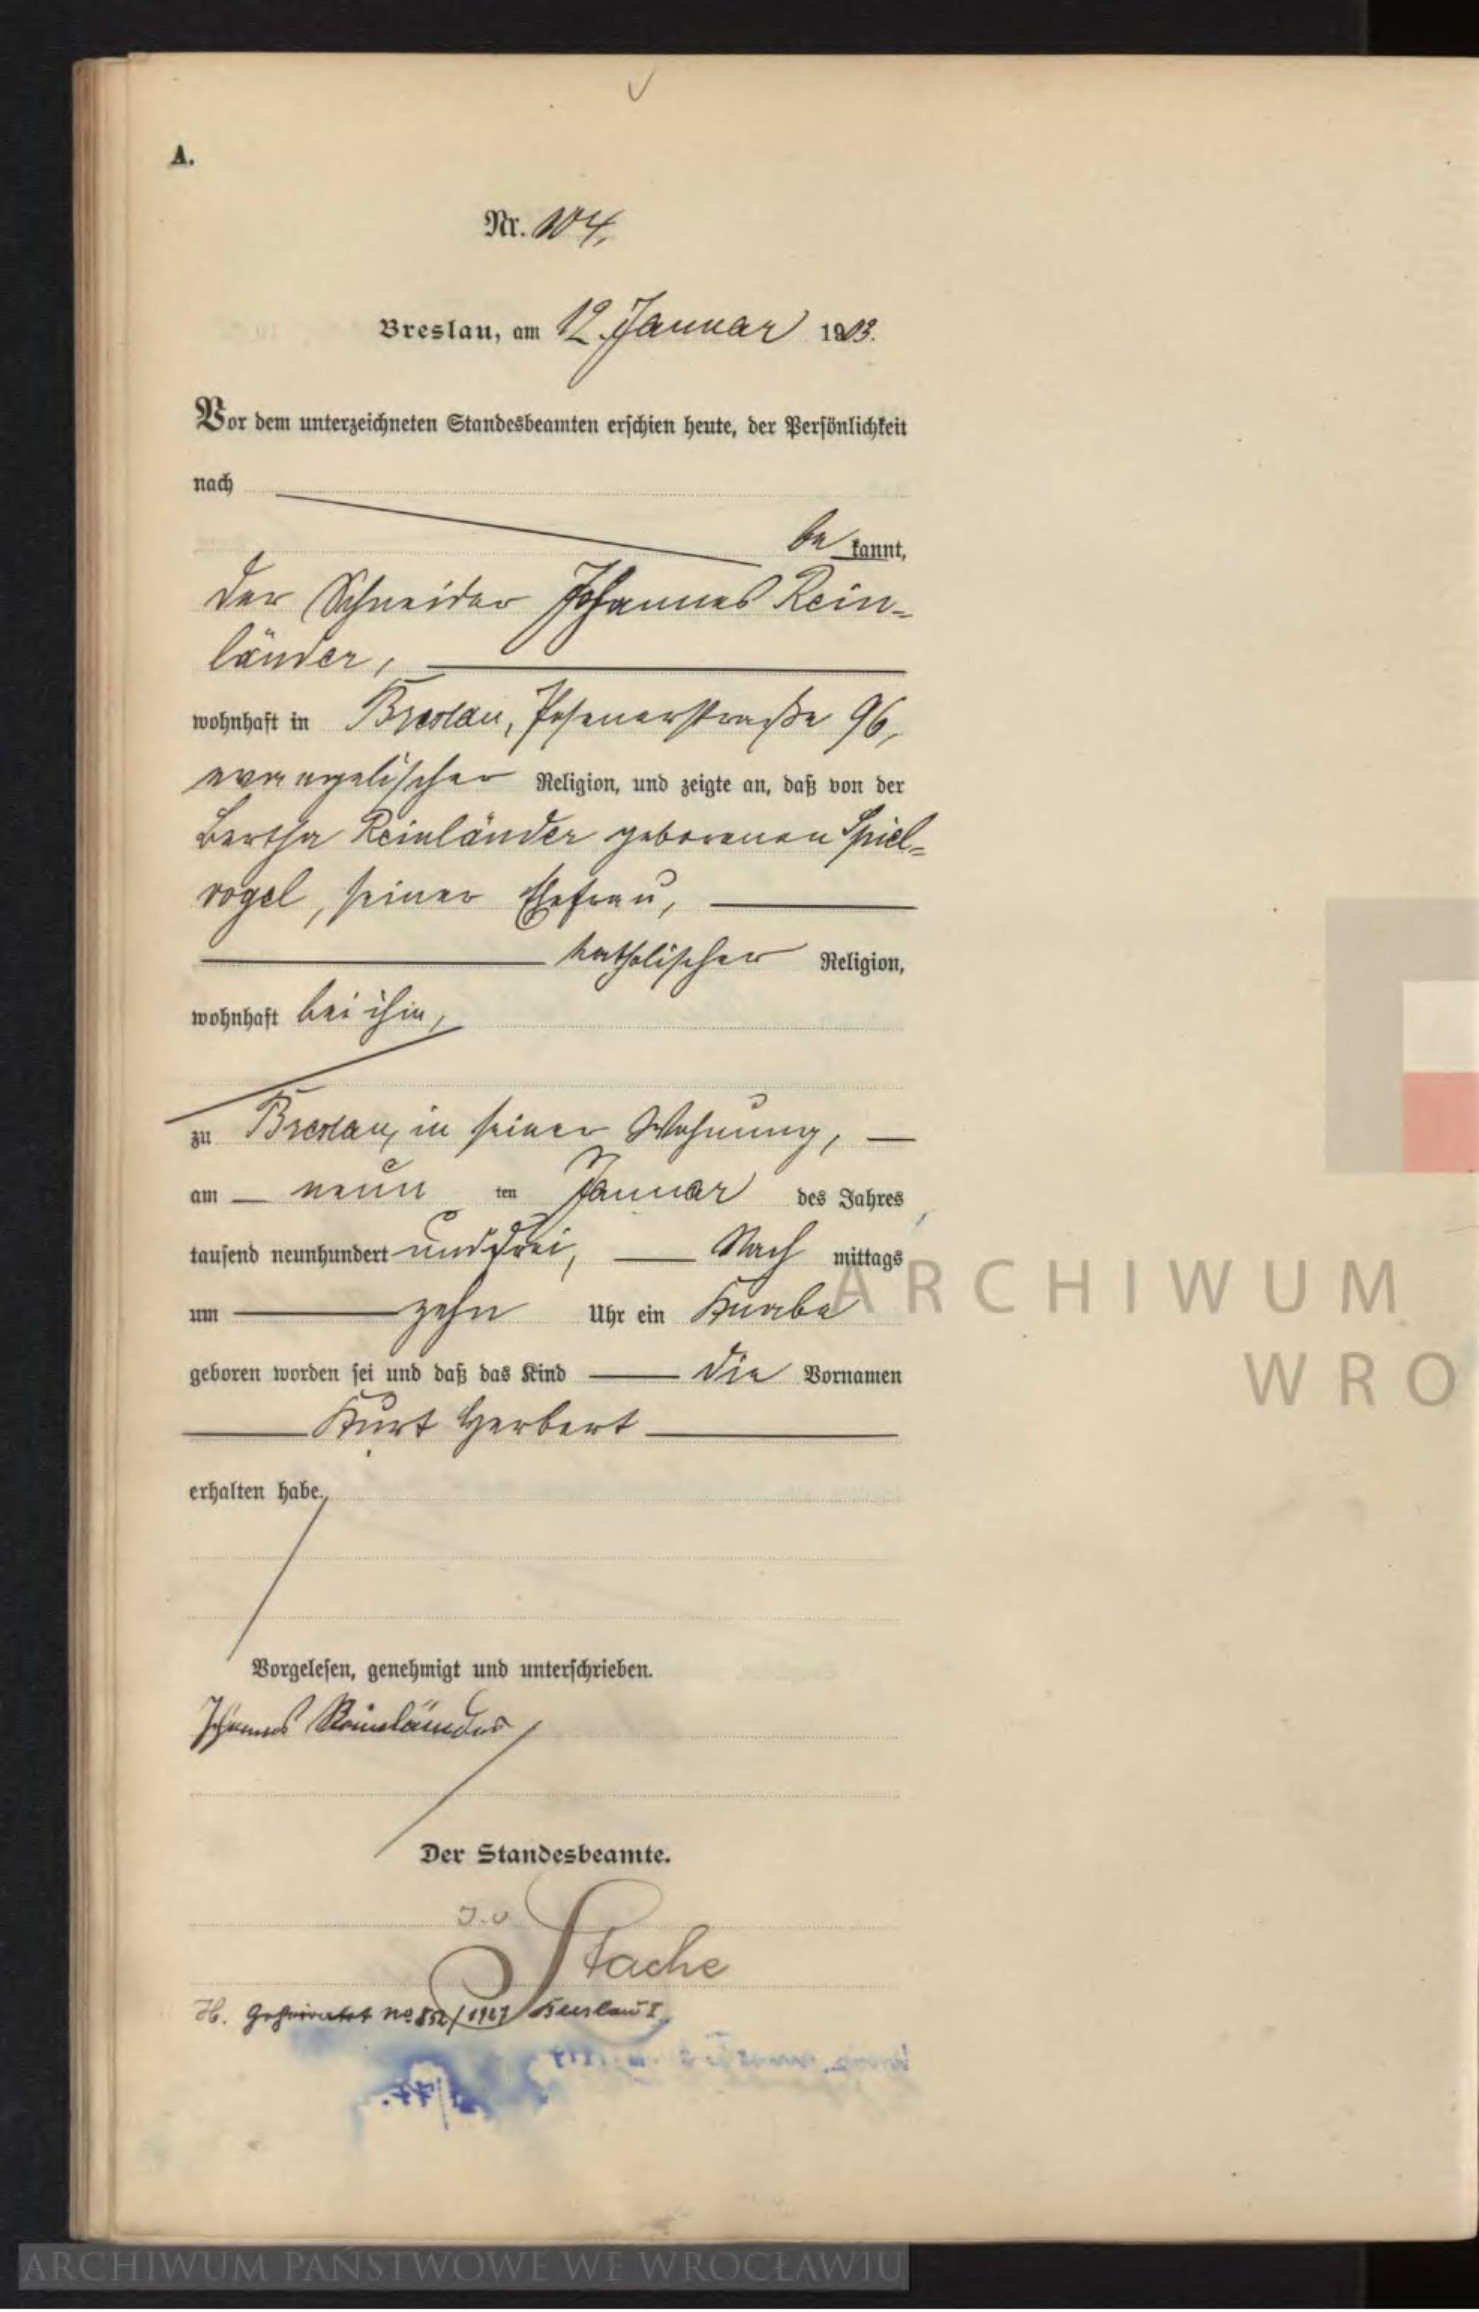 A.
Nr. 104.
Breslau, am 12 Januar 1903.
Vor dem unterzeichneten Standesbeamten erschien heute, der Persönlichkeit
nach
be kannt,
der Schneider Johannes Rein=
länder,
wohnhaft in Breslau, Posenerstraße 96,
evangelischer Religion, und zeigte an, daß von der
Bertha Reinländer geborenen Spiel=
vogel, seiner Ehefrau,
katholischer Religion,
wohnhaft bei ihm,
zu Breslau, in seiner Wohnung,
am neun ten Januar des Jahres
tausend neunhundert und drei, Nach mittags
um zehn Uhr ein Knabe
geboren worden sei und daß das Kind die Vornamen
Kurt Herbert
erhalten habe.
Vorgelesen, genehmigt und unterschrieben.
Johannes Reinländer
Der Standesbeamte.
J.V
Stache
H. Geheiratet no 852/1927 Breslau I.
ARCHIWUM
WRO
ARCHIWUM PAŃSTWOWE WE WROCŁAWIU